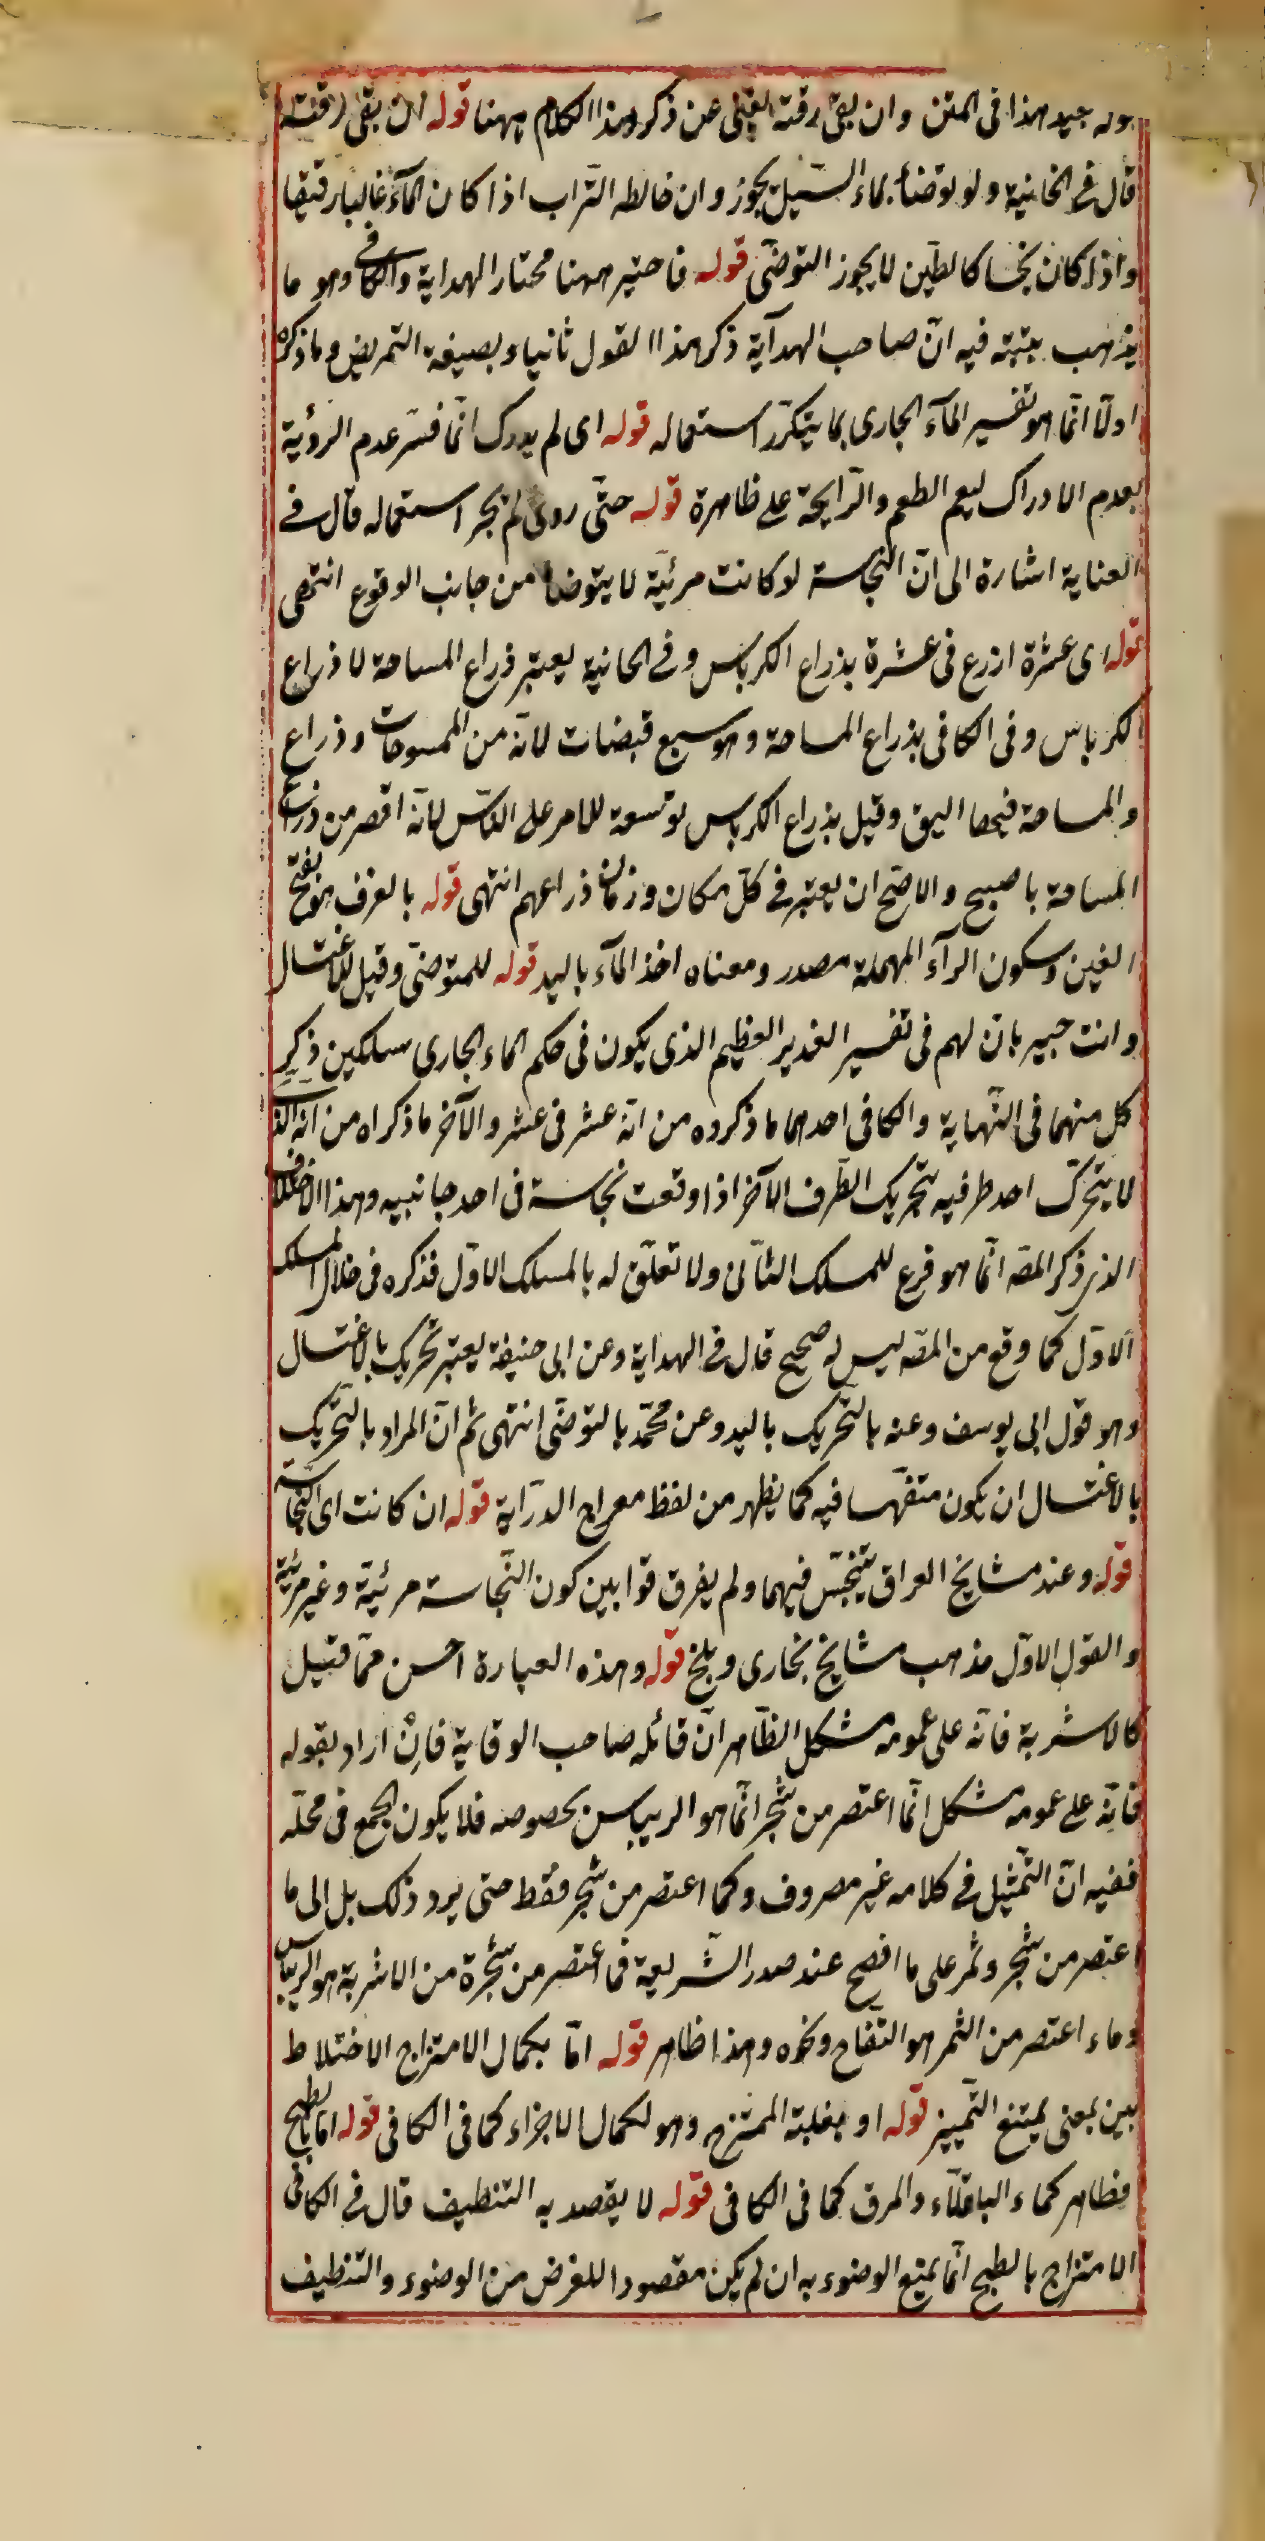 جيد هذا في المتن وان بقى رقته يغنى عن ذكر هذا الكلام ههنا قوله ان بقى رقته
قال في الخانية ولو توضأ بماء السيل يجوز وان خالطه التراب اذا كان الماء غالبا رقيقا
واذا كان ثخينا كالطين لا يجوز التوضى قوله فاختير ههنا مختار الهداية والكافى وهو ما
يذهب بتبنه فيه ان صاحب الهداية ذكر هذا القول ثانيا وبصيغة التمريض وما ذكره
اولا انما هو تفسير الماء الجارى بما يتكرر استعماله قوله اى لم يدرك انما فسر عدم الرؤية
بعدم الادراك ليعم الطعم والرايحة على ظاهرة قوله حتى روى لم يجز استعماله قال في
العناية اشارة الى ان النجاسة لو كانت مرئية لا يتوضأ من جانب الوقوع انتهى
قوله اى عشرة اذرع في عشرة بذراع الكرباس وفي الخانية يعتبر ذراع المساحة لا ذراع
الكرباس وفى الكافى بذراع المساحة وهو سبع قبضات لانه من الممسوحات وذراع
والمساحة فيحصا اليق وقيل بذراع الكرباس توسعة للامر على الناس لانه اقصر من ذراع
المساحة باصبع والاصح ان يعتبر في كل مكان وزمان ذراعهم انتهى قوله بالغرف هو بفتح
الغين وسكون الرآء المهملة مصدر ومعناه اخذ المآء باليد قوله للمتوضى وقيل للاغتسال
وانت خبير بان لهم في تفسير الغدير العظيم الذى يكون في حكم الماء الجارى مسلكين ذكر
كل منهما في النهاية والكافى احدهما ما ذكروه من انه عشر في عشر والآخر ما ذكراه من انه الذى
لا يتحرك احد طرفيه بتحريك الطرف الآخر اذا وقعت نجاسة في احد جانبيه وهذا الاختلاف
الذى ذكر المصه انما هو فرع للمسلك الثانى ولا تعلق له بالمسلك الاول فذكره في خلال المسلك
الاول كما وقع من المصه ليس له صحيح قال في الهداية وعن ابى حنيفة يعتبر تحريك بالاغتسال
وهو قول ابى يوسف وعنه بالتحريك باليد وعن محمد بالتوضى انتهى ثم ان المراد بالتحريك
بالاغتسال ان يكون متفهما فيه كما يظهر من لفظ معراج الدراية قوله ان كانت اى النجاسة
قوله وعند مشايخ العراق يتنجس فيهما ولم يفرقوا بين كون النجاسة مرئية وغير مرئية
والقول الاول مذهب مشايخ بخارى وبلخ قوله وهذه العبارة احسن مما قيل
كالاشربة فانه على عمومه مشكل الظاهر ان قائله صاحب الوقاية فان اراد بقوله
فانه على عمومه مشكل انما اعتصر من شجر انما هو الريباس بخصوصه فلا يكون الجمع في محله
ففيه ان التمثيل في كلامه غير مصروف وكما اعتصر من شجر فقط حتى يرد ذلك بل الى ما
اعتصر من شجر وثمر على ما افصح عند صدر الشريعة فما اعتصر من شجرة من الاشربة هو الريباس
وماء اعتصر من الثمر هو التفاح ونحوه وهذا ظاهر قوله اما بكمال الامتزاج الاختلاط
بين بمعنى يمتنع التمييز قوله او بغلبة الممتزج وهو لكمال الاجزاء كما في الكافى قوله اما بالطبخ
فظاهر كماء الباقلاء والمرق كما في الكافى قوله لا يقصد به التنظيف قال في الكافى
الامتزاج بالطبخ انما يمنع الوضوء به ان لم يكن مقصودا للغرض من الوضوء والتنظيف